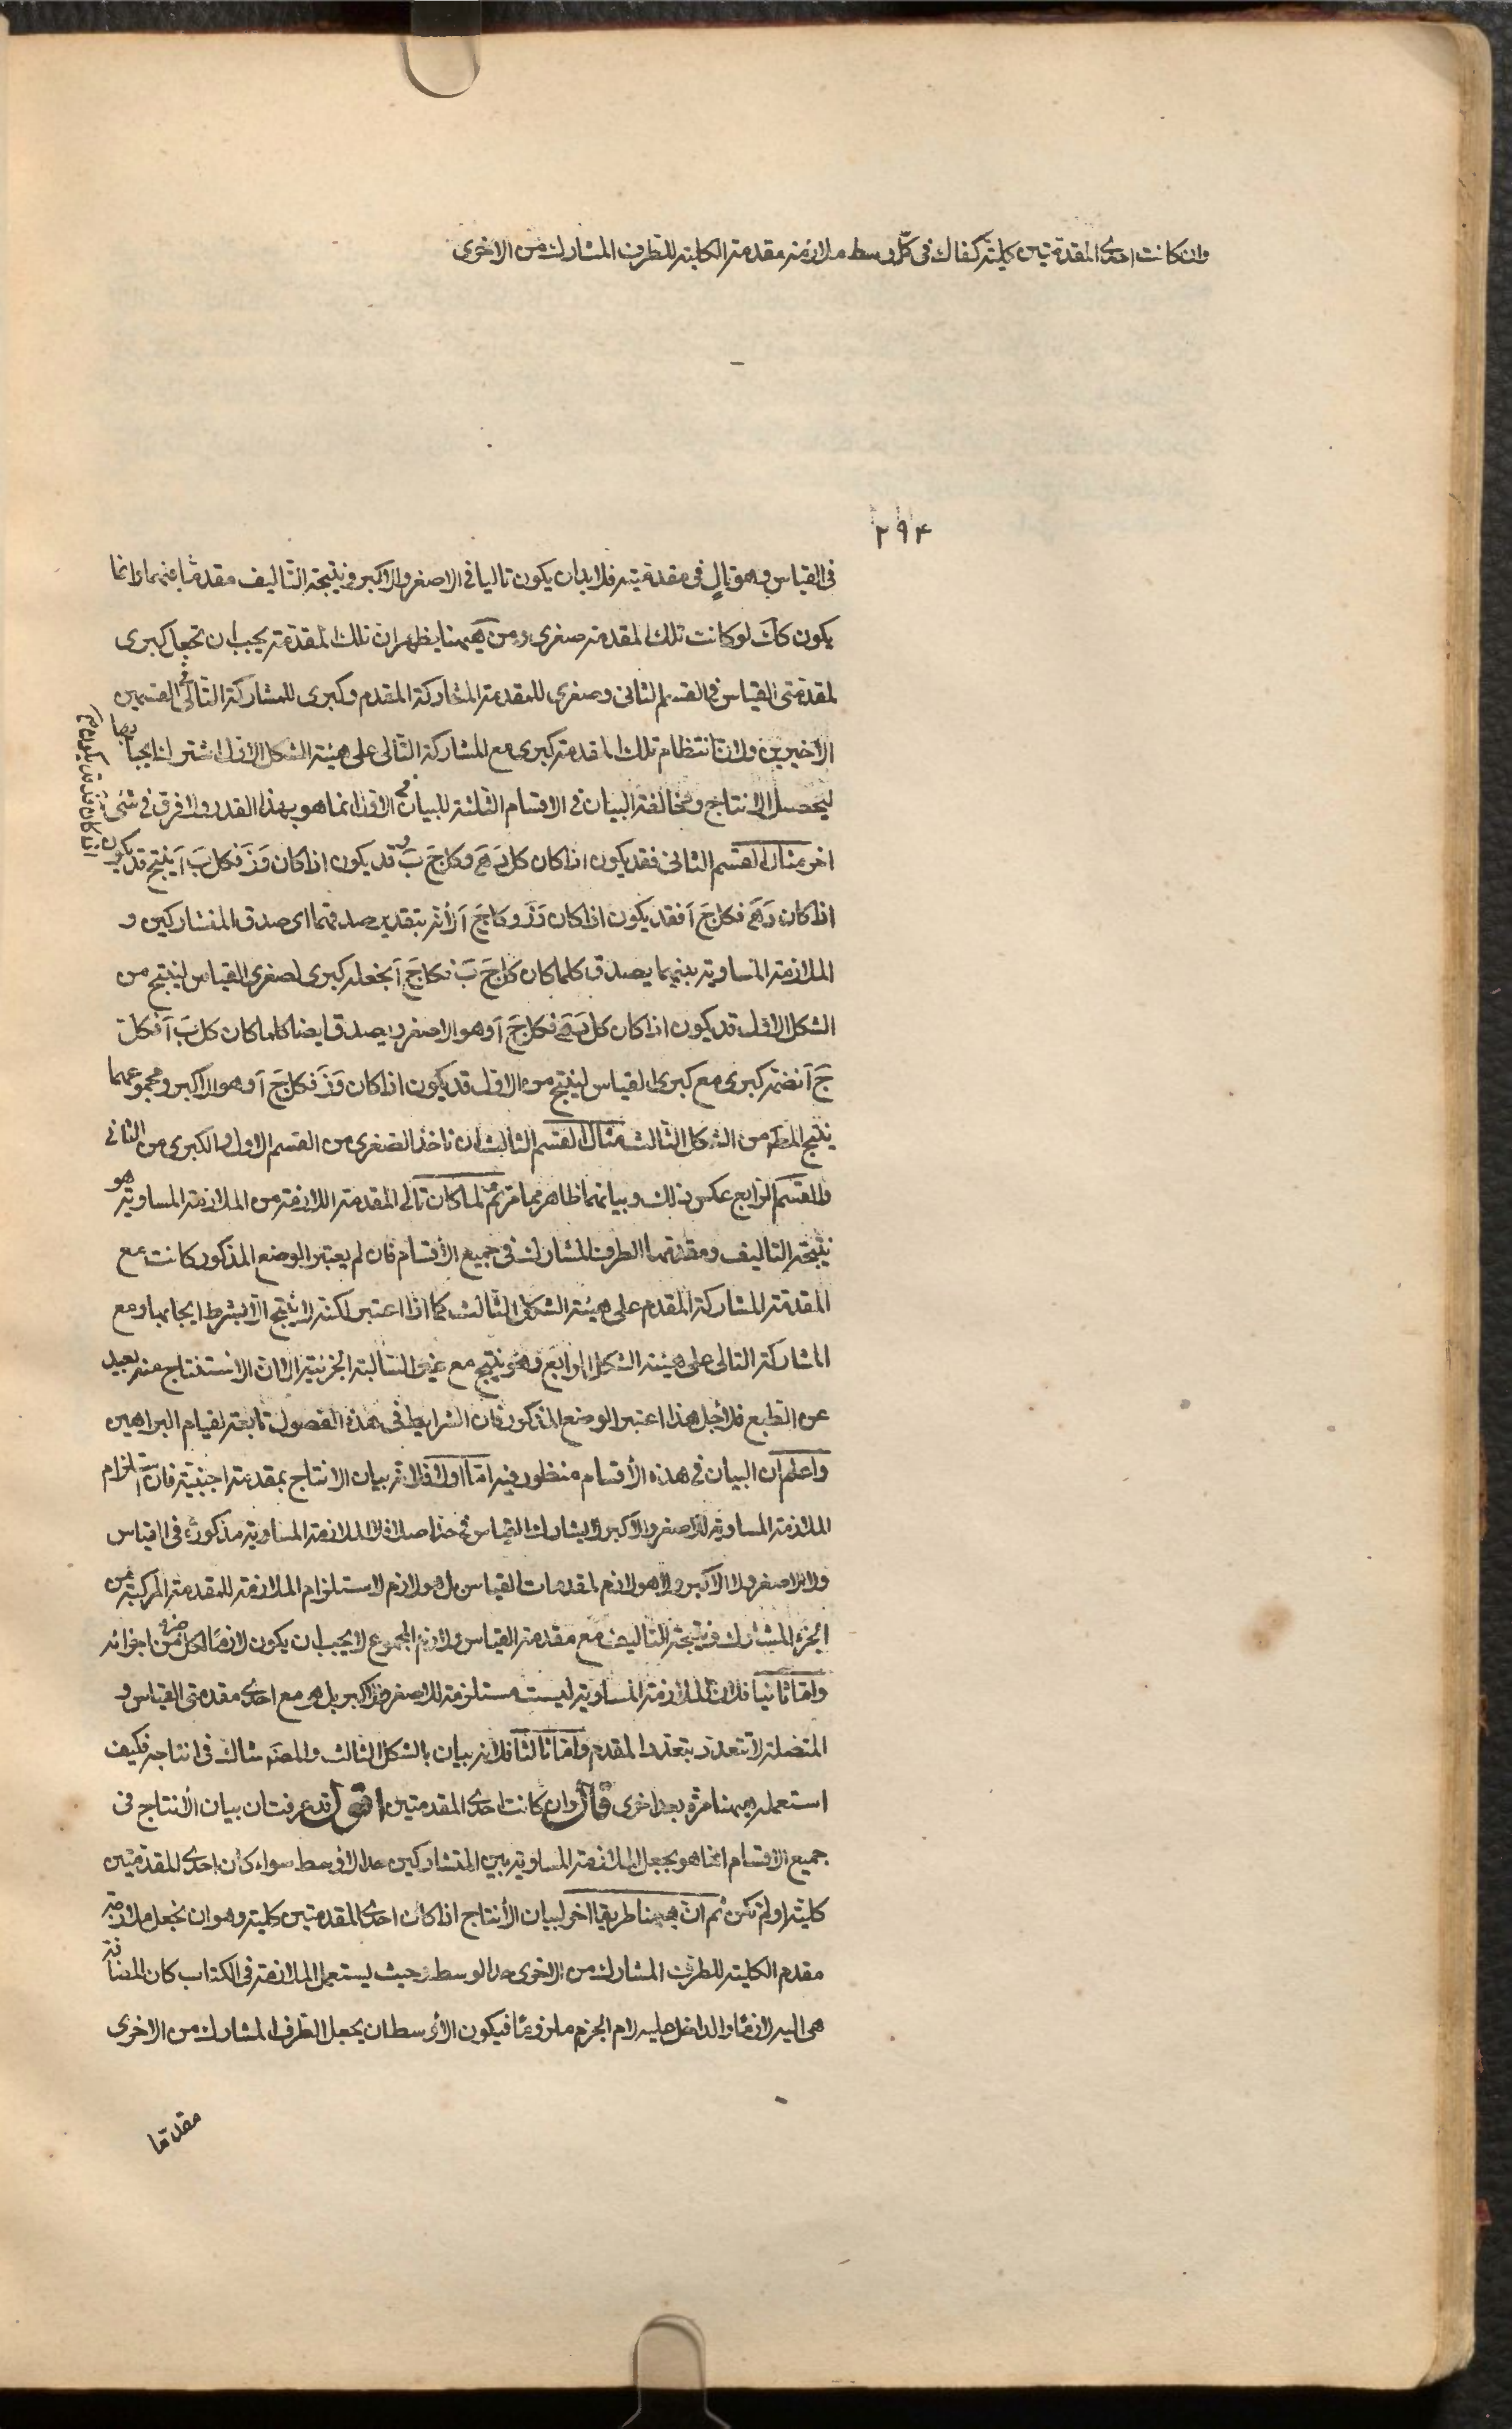 وان كانت احدى المقدمتين كلية كفاك فى كل وسط ملازمة مقدمة الكلية للطرف المشارك من الاخرى
٢٩٤
فى القياس وهو تالٍ فى مقدمتيه فلابد ان يكون تاليا فى الاصغر والاكبر ونتيجة التأليف مقدما عنهما وانما
يكون كك لو كانت تلك المقدمة صغرى ومن ههنا يظهر ان تلك المقدمة يجب ان تجعل كبرى
لمقدمتى القياس فى القسم الثانى وصغرى للمقدمة المشاركة المقدم وكبرى للمشاركة التالى فى القسمين
الاخيرين ولان انتظام تلك المقدمة كبرى مع المشاركة التالى على هيئة الشكل الاول اشترط ايجابها
ليحصل الانتاج ومخالفة البيان فى الاقسام الثلثة للبيان فى الاول انما هو بهذا القدر ولا فرق فى شئ
اخر مثال القسم الثانى فقد يكون اذا كان كل دَ هَ فكل جَ بَ وقد يكون اذا كان وَ زَ فكل بَ آ ينتج قد يكون
اذا كان دَ هَ فكل جَ آ فقد يكون اذا كان وَ زَ فكل جَ آ لأنه بتقدير صدقهما اى صدق المتشاركين و
الملازمة المساوية بينهما يصدق كلما كان كل جَ بَ فكل جَ آ نجعله كبرى لصغرى القياس لينتج من
الشكل الاول قد يكون اذا كان كل دَ هَ فكل جَ آ وهو الاصغر ويصدق ايضا كلما كان كل بَ آ فكل
جَ آ نضمه كبرى مع كبرى القياس لينتج من الاول قد يكون اذا كان وَ زَ فكل جَ آ وهو الاكبر ومجموعهما
ينتج المط من الشكل الثالث مثال القسم الثالث ان ناخذ الصغرى من القسم الاول والكبرى من الثانى
والقسم الرابع عكس ذلك وبيانهما ظاهر مما مر ثم لما كان تالى المقدمة اللازمة من الملازمة المساوية هو
نتيجة التاليف ومقدمها الطرف المشارك فى جميع الأقسام فان لم يعتبر الوضع المذكور كانت مع
المقدمة المشاركة المقدم على هيئة الشكل الثالث كما اذا اعتبر لكنه لا ينتج الا بشرط ايجابها ومع
المشاركة التالى على هيئة الشكل الرابع وهو ينتج مع غير السالبة الجزئية الا ان الاستنتاج عنه بعيد
عن الطبع فلاجل هذا اعتبر الوضع المذكور فان الشرايط فى هذه الفصول تابعة لقيام البراهين
واعلم ان البيان فى هذه الأقسام منظور فيه اما اولا فلانه بيان الانتاج بمقدمة اجنبية فان استلزام
الملازمة المساوية للاصغر والاكبر لا يشارك القياس فى حد اصلا فلا الملازمة المساوية مذكورة فى القياس
ولا الاصغر ولا الاكبر ولا هو لازم لمقدمات القياس بل هو لازم لاستلزام الملازمة للمقدمة المركبة من
الجزء المشارك ونتيجة التاليف مع مقدمة القياس ولازم المجموع لا يجب ان يكون لازما لكل جزء من اجزائه
واما ثانيا فلان الملازمة المساوية ليست مستلزمة للاصغر والاكبر بل هو مع احدى مقدمتى القياس و
المتصلة لا تتعدد بتعدد المقدم واما ثالثا فلانه بيان بالشكل الثالث والمص شاك فى انتاجه فكيف
استعمله ههنا مرة بعد اخرى قال وان كانت احدى المقدمتين اقول قد عرفت ان بيان الأنتاج فى
جميع الاقسام انما هو بجعل الملازمة المساوية بين المتشاركين حدا لاوسط سواء كان احدى المقدمتين
كلية او لم تكن ثم ان ههنا طريقا اخر لبيان الأنتاج اذا كان احدى المقدمتين كلية وهو ان نجعل ملازمة
مقدم الكلية للطرف المشارك من الاخرى حد الوسط وحيث يستعمل الملازمة فى الكتاب كان المضافة
هى اليه لازما والداخل عليه لام الجزم ملزوما فيكون الأوسط ان يجعل الطرف المشارك من الاخرى
مقدما